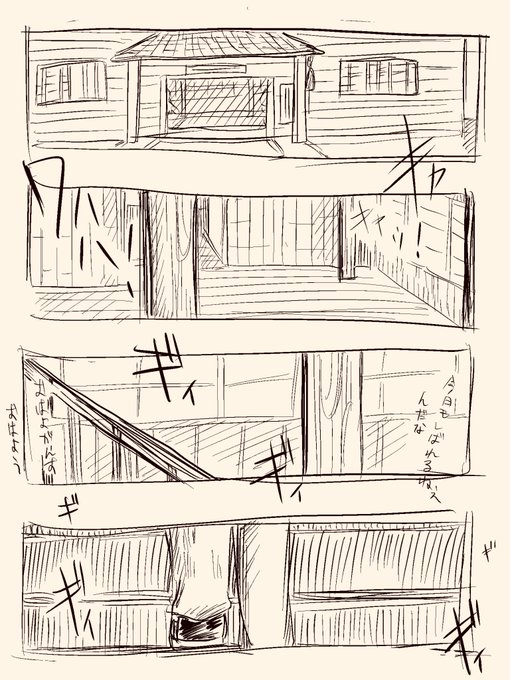 キャ
キャッ!
ワハハ!
ギィ
今日もしばれるねぇ
んだな
ギィ
おはよがんす
おはよう
ギ
ギ
ギィ
ギィ